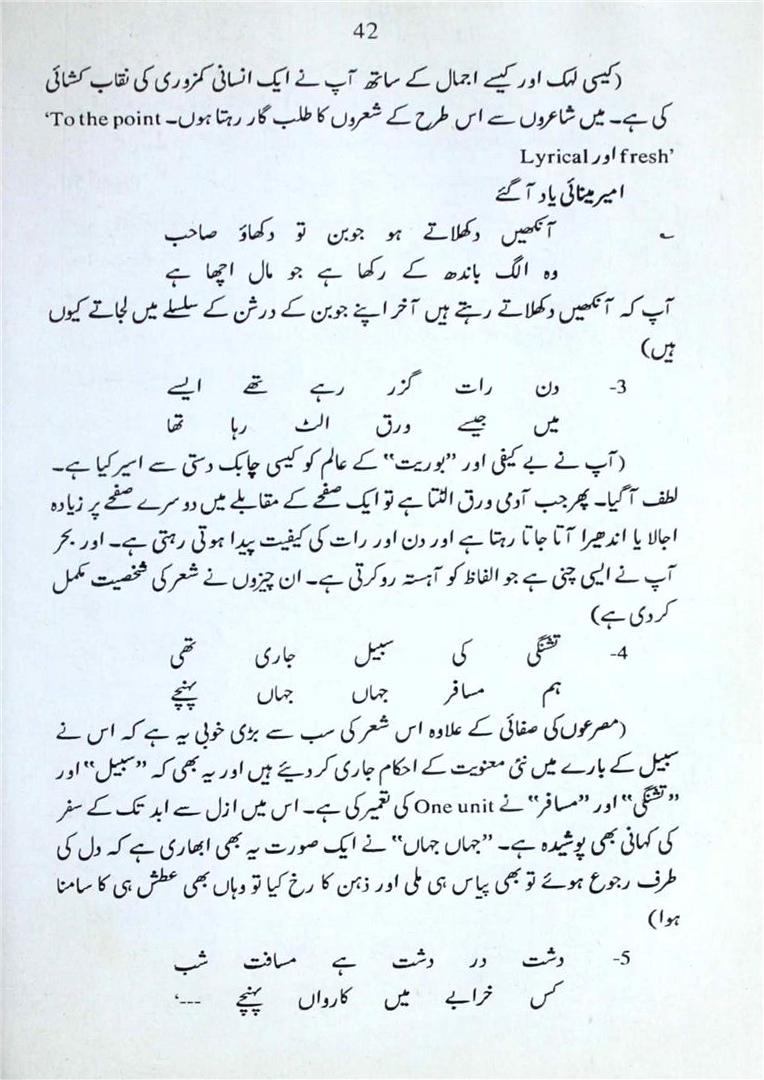 42
(کیسی لہک اور کیسے اجمال کے ساتھ آپ نے ایک انسانی کمزوری کی نقاب کشائی
کی ہے۔ میں شاعروں سے اس طرح کے شعروں کا طلب گار رہتا ہوں۔ To the point‘
’fresh اور Lyrical
امیر مینائی یاد آ گئے
؎ آنکھیں دکھلاتے ہو جوبن تو دکھاؤ صاحب
وہ الگ باندھ کے رکھا ہے جو مال اچھا ہے
آپ کہ آنکھیں دکھلاتے رہتے ہیں آخر اپنے جوبن کے درشن کے سلسلے میں لجاتے کیوں
ہیں)
3- دن رات گزر رہے تھے ایسے
میں جیسے ورق الٹ رہا تھا
(آپ نے بے کیفی اور ”بوریت“ کے عالم کو کیسی چابک دستی سے اسیر کیا ہے۔
لطف آ گیا۔ پھر جب آدمی ورق الٹتا ہے تو ایک صفحے کے مقابلے میں دوسرے صفحے پر زیادہ
اجالا یا اندھیرا آتا جاتا رہتا ہے اور دن اور رات کی کیفیت پیدا ہوتی رہتی ہے۔ اور بحر
آپ نے ایسی چنی ہے جو الفاظ کو آہستہ رو کرتی ہے۔ ان چیزوں نے شعر کی شخصیت مکمل
کر دی ہے)
4- تشنگی کی سبیل جاری تھی
ہم مسافر جہاں جہاں پہنچے
(مصرعوں کی صفائی کے علاوہ اس شعر کی سب سے بڑی خوبی یہ ہے کہ اس نے
سبیل کے بارے میں نئی معنویت کے احکام جاری کر دیئے ہیں اور یہ بھی کہ ”سبیل“ اور
”تشنگی“ اور ”مسافر“ نے One unit کی تعمیر کی ہے۔ اس میں ازل سے ابد تک کے سفر
کی کہانی بھی پوشیدہ ہے۔ ”جہاں جہاں“ نے ایک صورت یہ بھی ابھاری ہے کہ دل کی
طرف رجوع ہوئے تو بھی پیاس ہی ملی اور ذہن کا رخ کیا تو وہاں بھی عطش ہی کا سامنا
ہوا)
5- دشت در دشت ہے مسافت شب
کس خرابے میں کارواں پہنچے ---‘